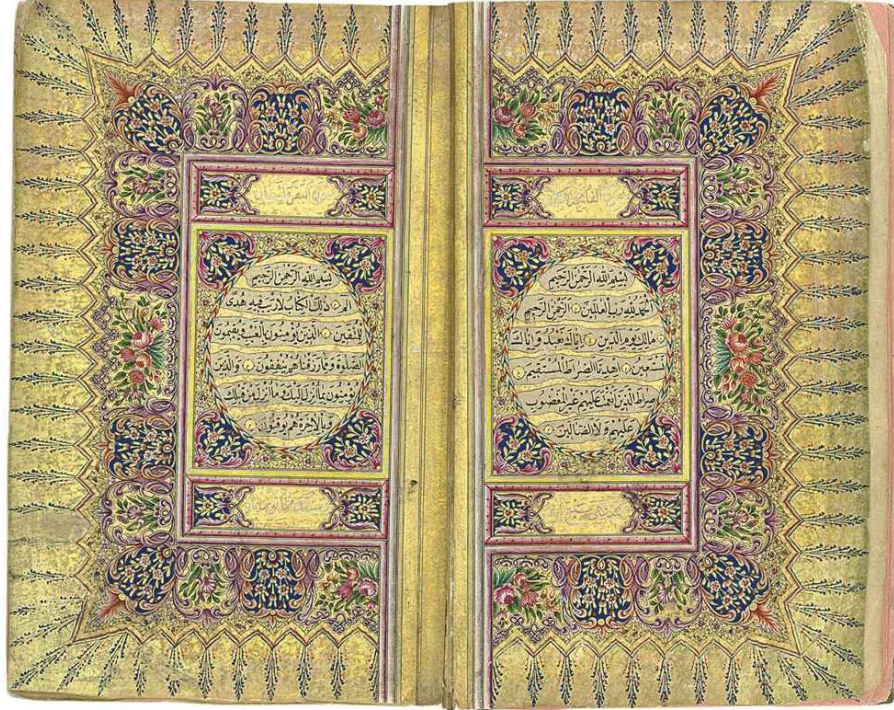 سورة الفاتحة
بِسْمِ اللّٰهِ الرَّحْمٰنِ الرَّحِيمِ
اَلْحَمْدُ لِلّٰهِ رَبِّ الْعَالَمِينَ الرَّحْمٰنِ الرَّحِيمِ
مَالِكِ يَوْمِ الدِّينِ اِيَّاكَ نَعْبُدُ وَاِيَّاكَ
نَسْتَعِينُ اِهْدِنَا الصِّرَاطَ الْمُسْتَقِيمَ
صِرَاطَ الَّذِينَ اَنْعَمْتَ عَلَيْهِمْ غَيْرِ الْمَغْضُوبِ
عَلَيْهِمْ وَلَا الضَّالِّينَ
سورة البقرة
بِسْمِ اللّٰهِ الرَّحْمٰنِ الرَّحِيمِ
الم ذٰلِكَ الْكِتَابُ لَا رَيْبَ فِيهِ هُدًى
لِلْمُتَّقِينَ الَّذِينَ يُؤْمِنُونَ بِالْغَيْبِ وَيُقِيمُونَ
الصَّلٰوةَ وَمِمَّا رَزَقْنَاهُمْ يُنْفِقُونَ وَالَّذِينَ
يُؤْمِنُونَ بِمَا اُنْزِلَ اِلَيْكَ وَمَا اُنْزِلَ مِنْ قَبْلِكَ
وَبِالْاٰخِرَةِ هُمْ يُوقِنُونَ